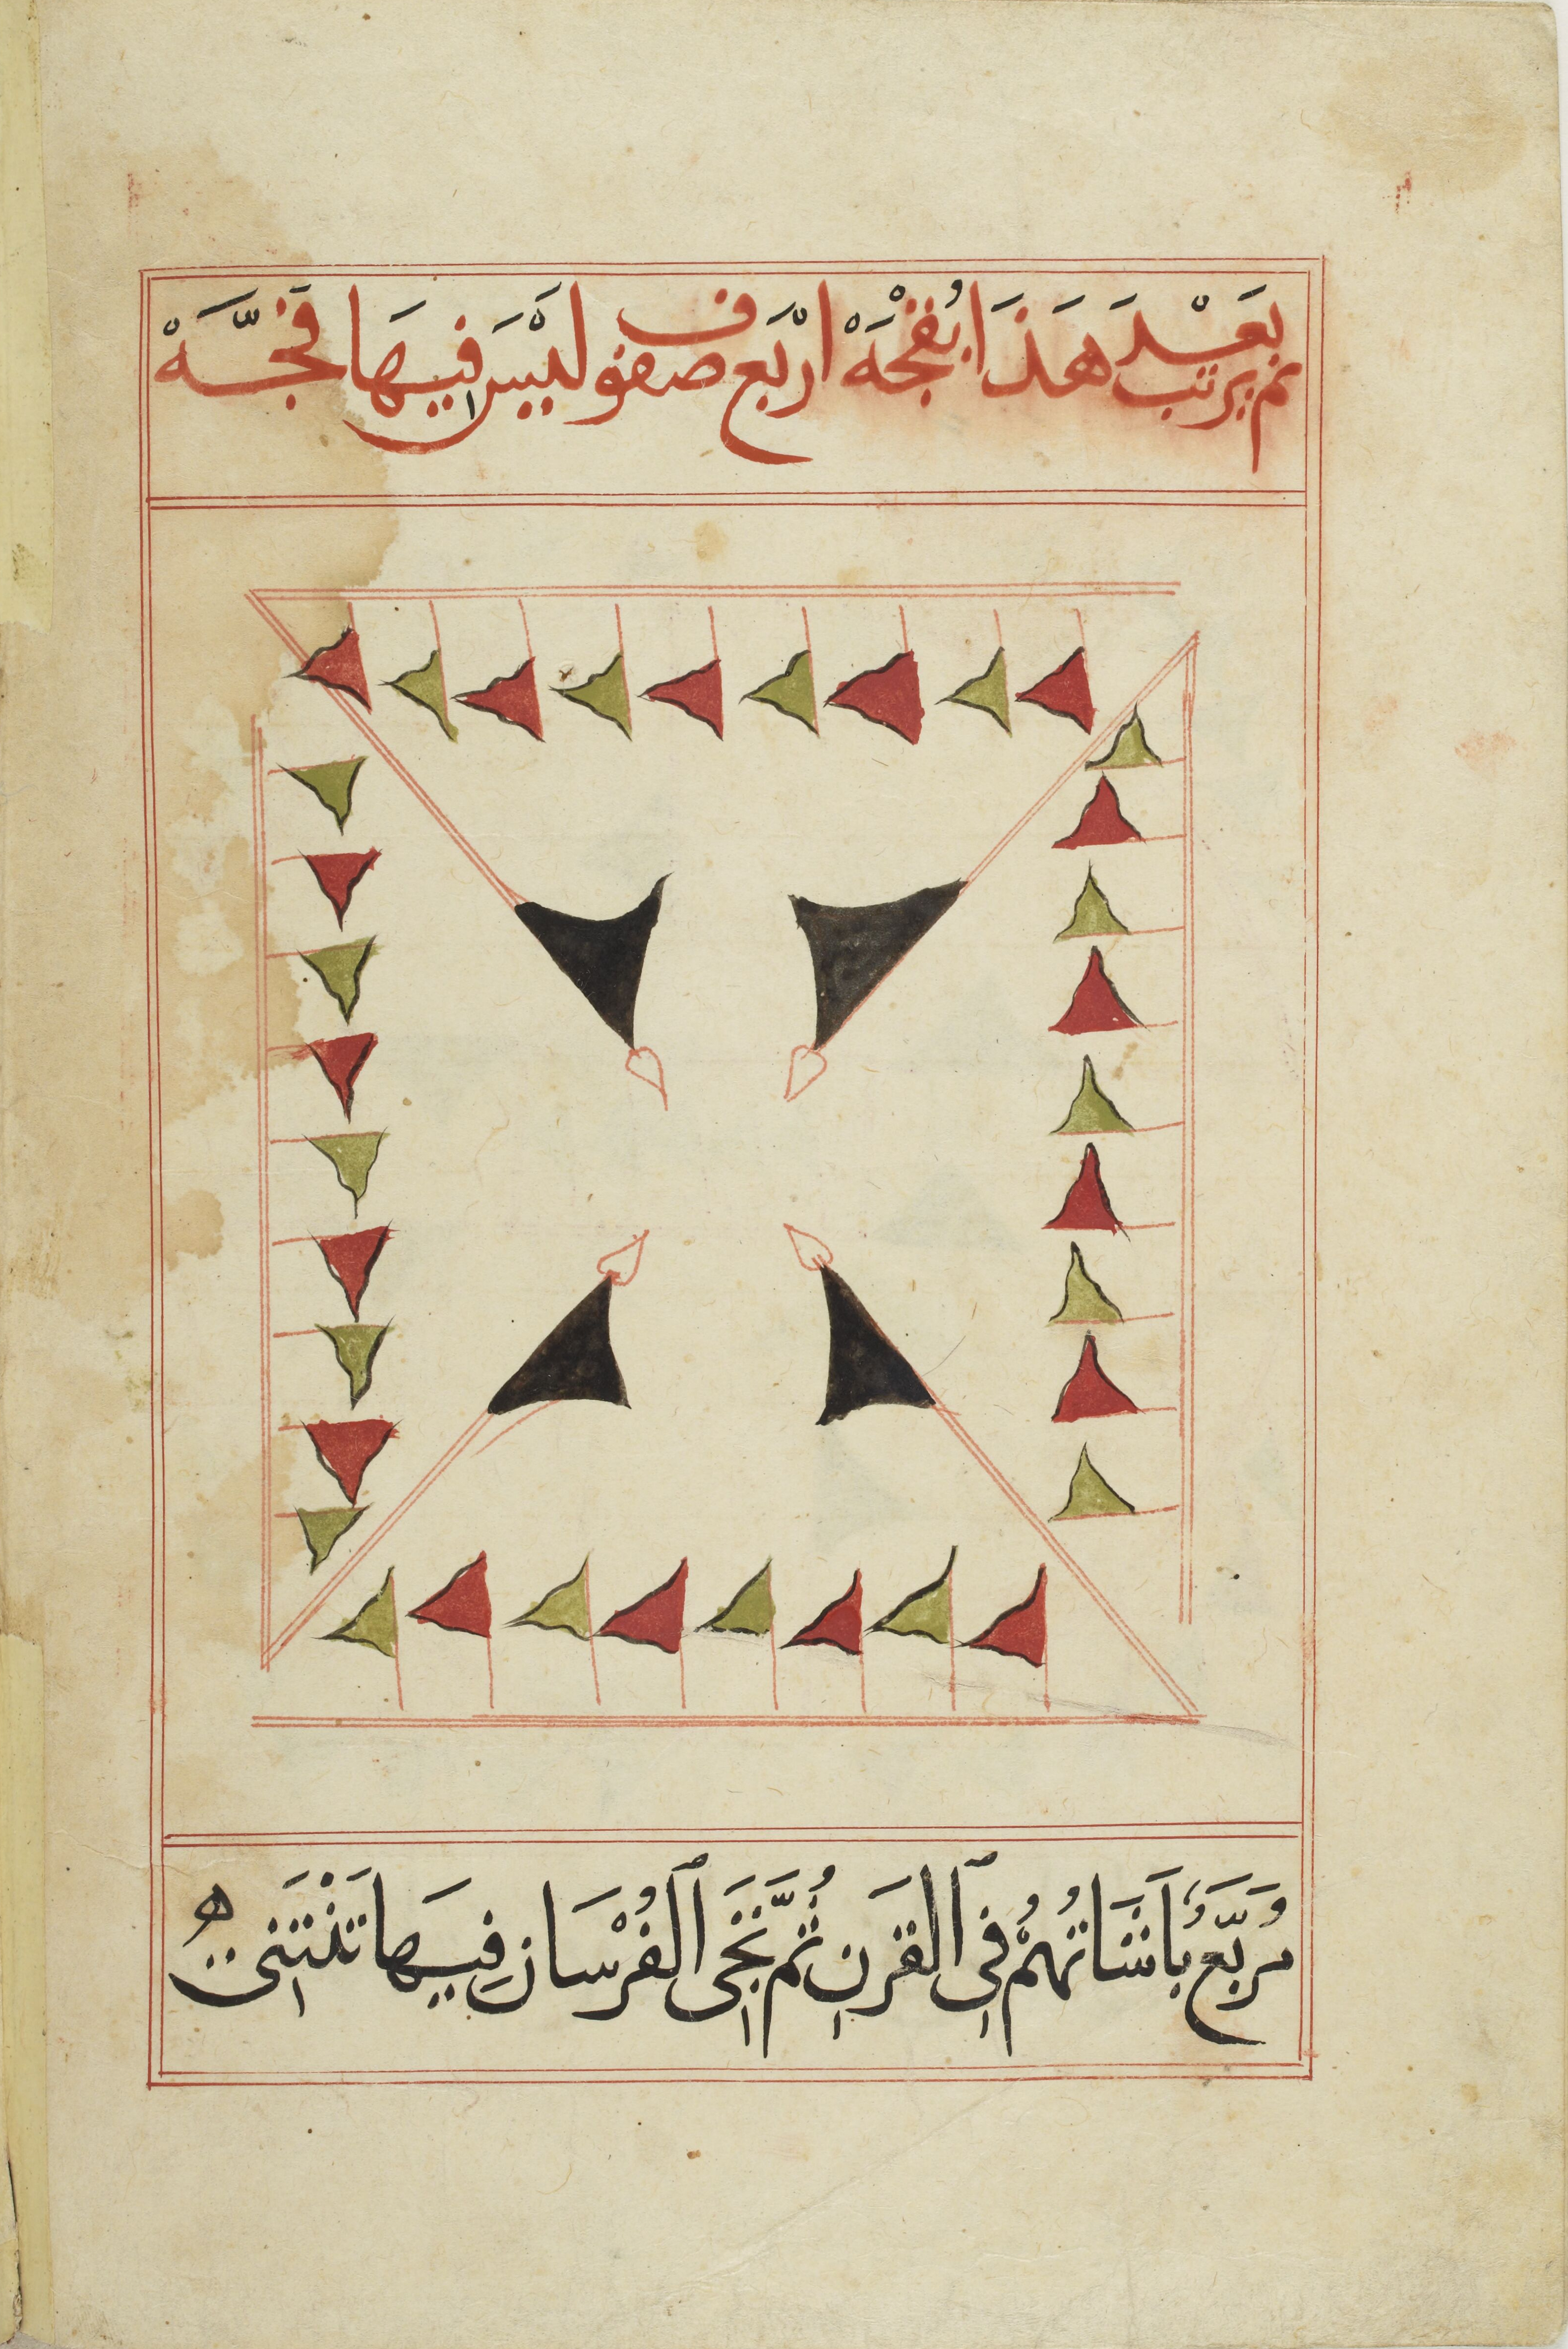 ثم يرتب بَعْدَ هَذَا بُفَجْهَ ارْبَع صفوف لَيْسَ فِيهَا فَجَّه
مُرَبَّعْ بَاشَاتُهُمْ فِى ٱلقَرنِ ثُمَّ تَجَى ٱلفُرْسَان فِيهَا تَنْثَنِى